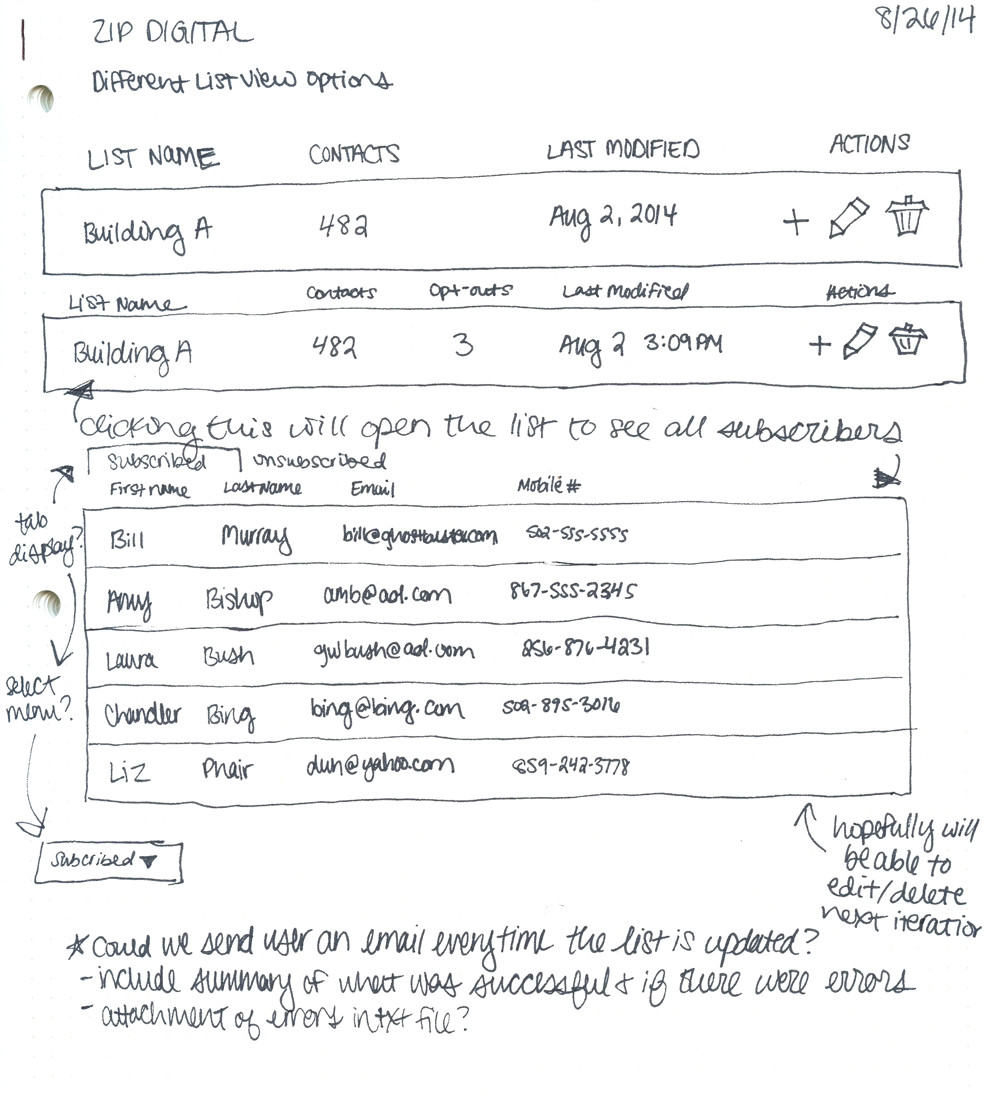 8/26/14
ZIP DIGITAL
Different List View Options
LIST NAME CONTACTS LAST MODIFIED ACTIONS
Building A 482 Aug 2, 2014 +
List Name Contacts Opt-outs Last Modified Actions
Building A 482 3 Aug 2 3:09PM +
clicking this will open the list to see all subscribers
Subscribed unsubscribed
First name Last Name Email Mobile #
tab
display?
Bill Murray bill@ghostbuster.com 502-555-5555
Amy Bishop amb@aol.com 867-555-2345
Laura Bush gwbush@aol.com 256-876-4231
select
menu?
Chandler Bing bing@bing.com 502-895-3016
Liz Phair duh@yahoo.com 859-242-3778
hopefully will
be able to
edit/delete
next iteration
Subcribed ▼
* Could we send user an email everytime the list is updated?
- include summary of what was successful & if there were errors
- attachment of errors in txt file?